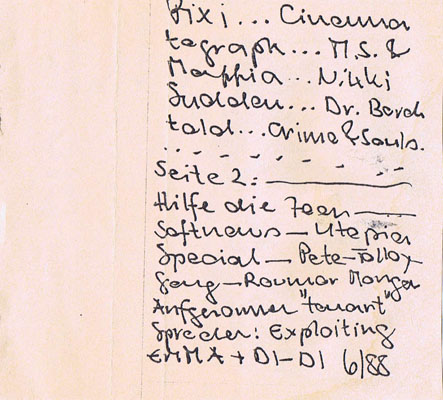 Pixi... Cinema
tograph... M.S. &
Maffia... Nikki
Sudden... Dr. Borch
told... Crime & Souls.
Seite 2:
Hilfe die Feen
Softnews - Utopia
Special - Pete
Gang - Raumar
Aufgenommen "tenant"
Sprecher: Exploiting
EMMA + DI-DI 6/88